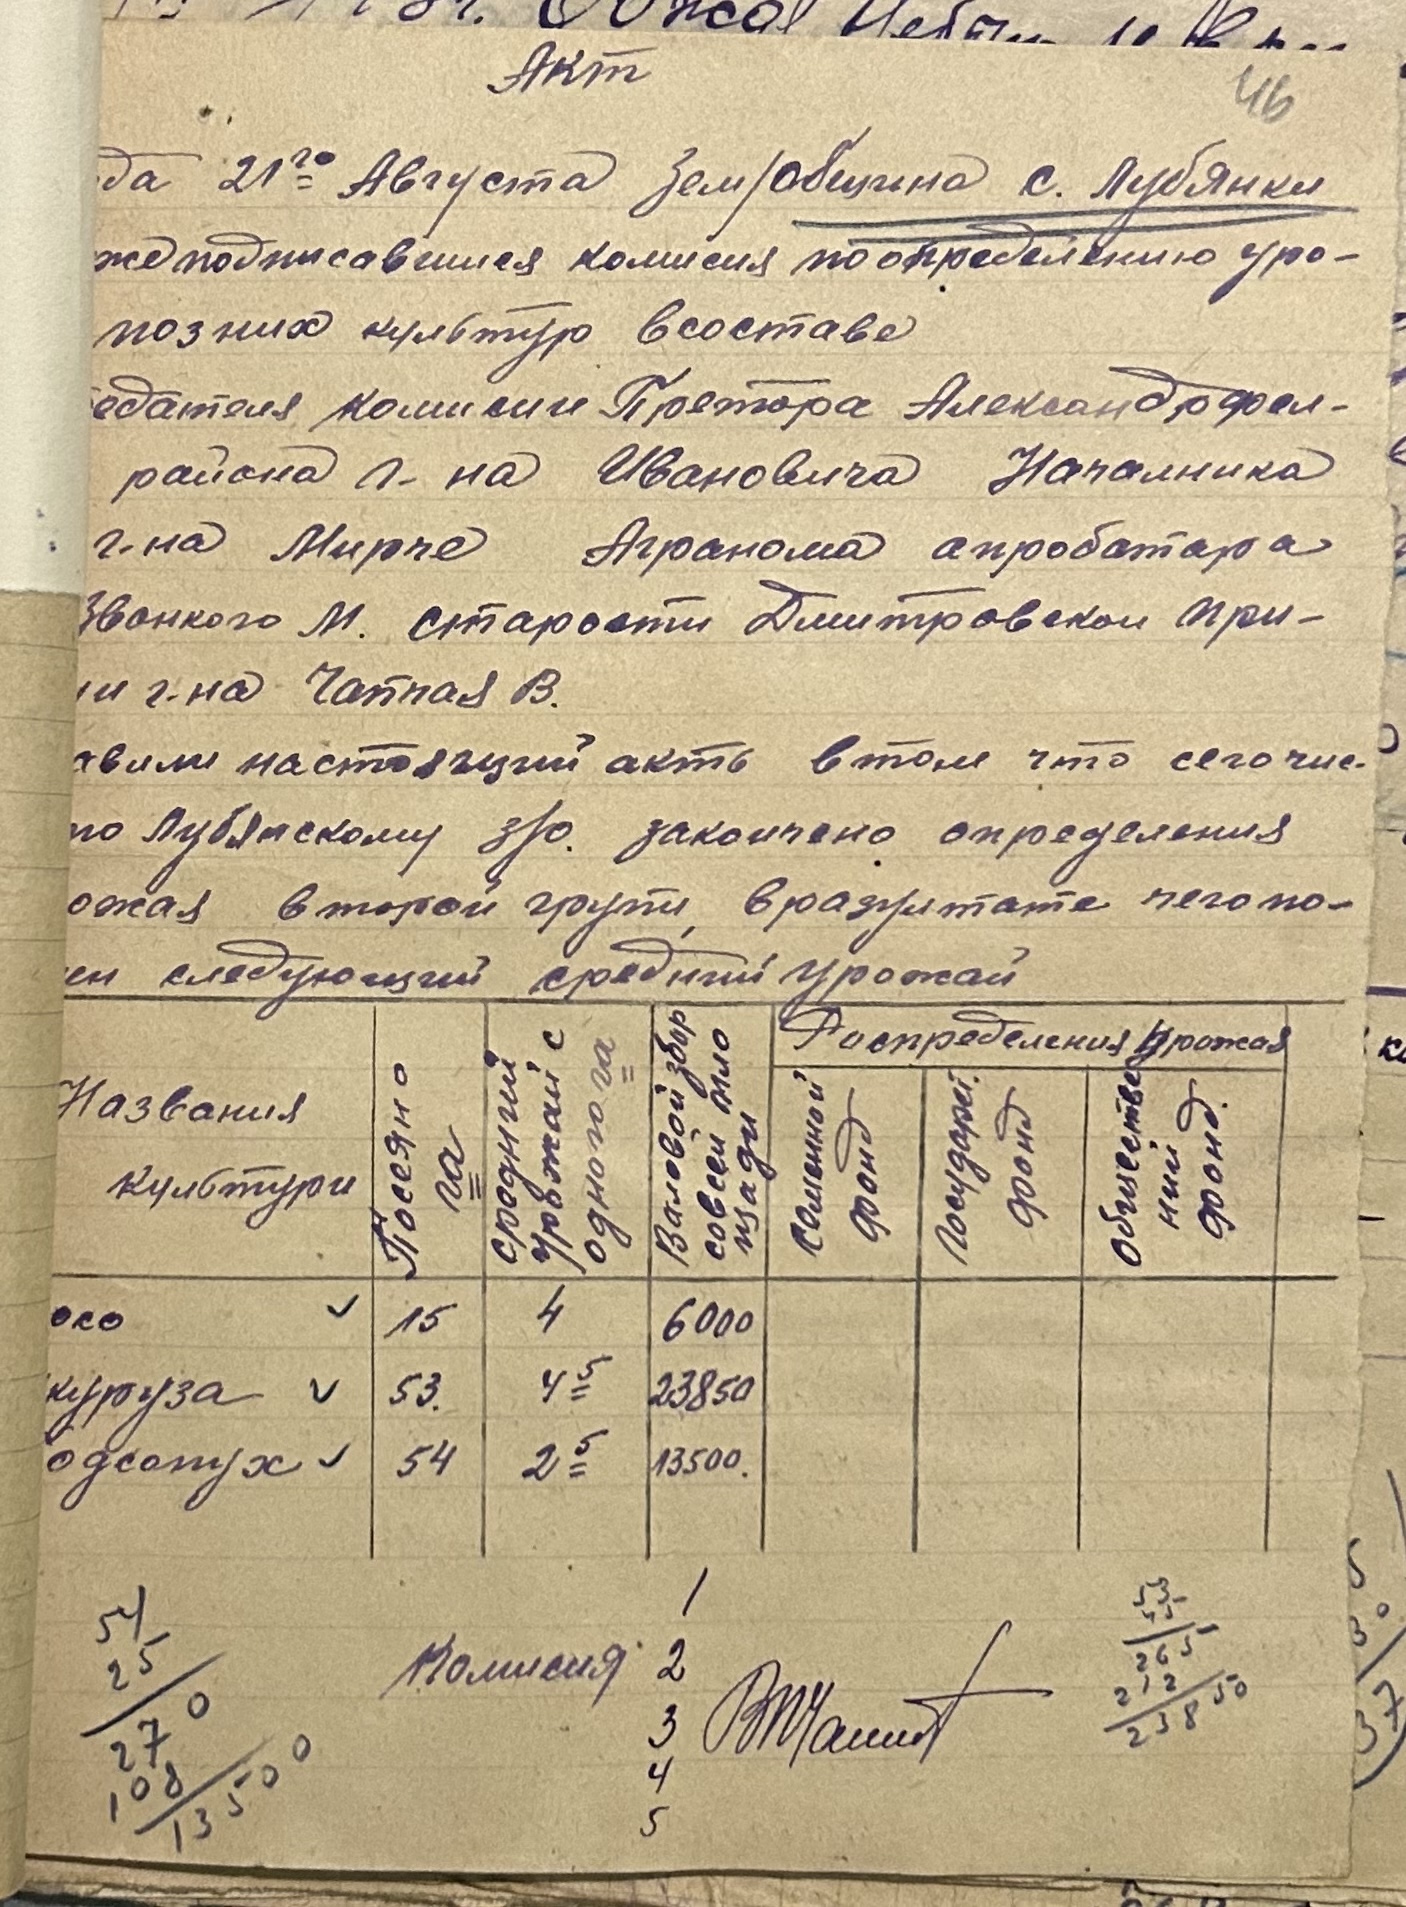 Акт
46
да 21го Августа Зем/община с. Лубянки
жеподписавшиеся комисия поопределению уро-
позних культур всоставе
едателя комисии Претора Александрфел-
района г-на Ивановича Началника
г-на Мирче Агранома апробатара
Звонкого М. старости Дмитровской при-
ии г-на Чаплая В.
авили настоящий акть втом что сегочис-
по Лубянскому з/о. закончено определения
ожая второй групи, вразултате чегопо-
ен следующий средний урожай
Названия культури
Посеяно га
средний урожай с одного га
Валовой збор совсей площади
Роспределения урожая
Семенной фонд
Государст. фонд
Обществений фонд.
осо ✓ 15 4 6000
куруза ✓ 53. 4 5 23850
одсолнух ✓ 54 2 5 13500.
Комисия
1
2
3
4
5
54
25
270
108
13500
53
45
265
212
23850